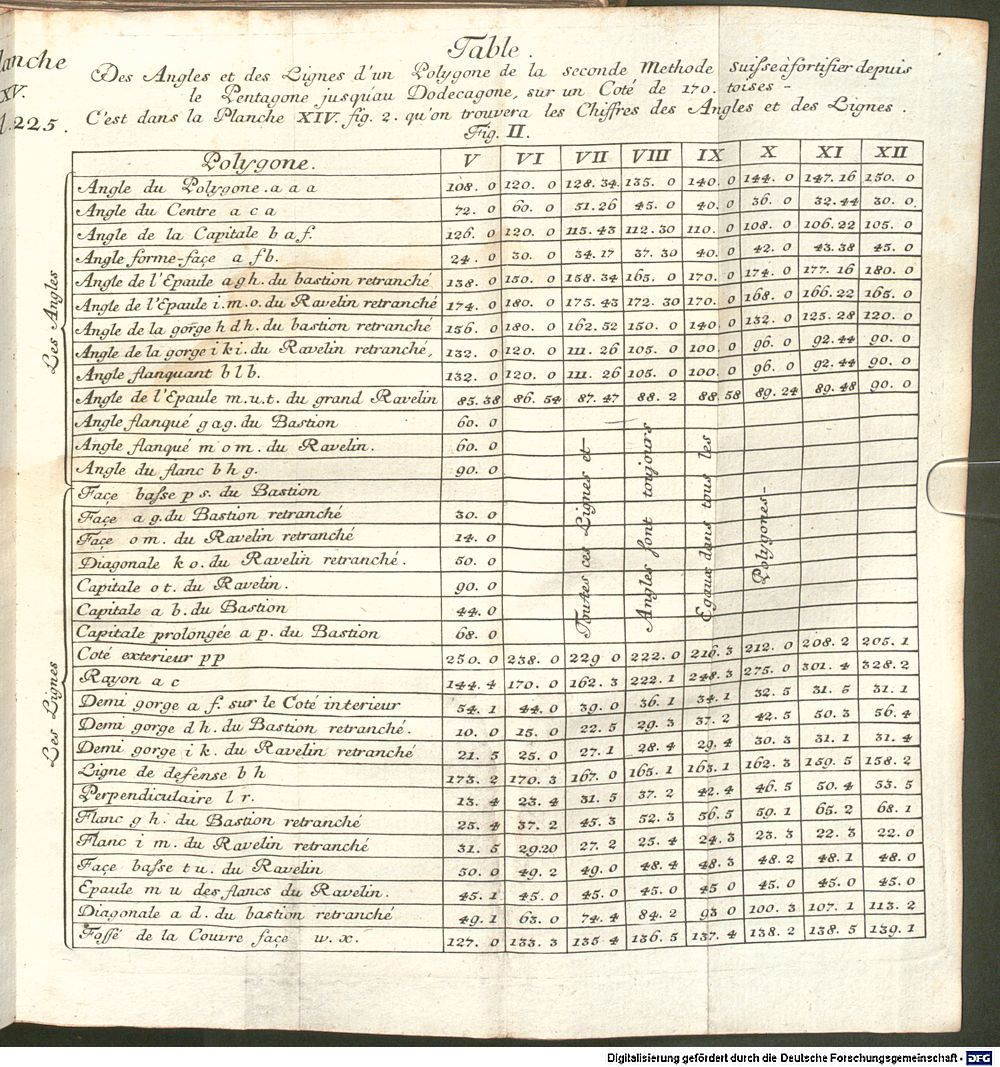 lanche
XV.
1.225.
Table.
Des Angles et des Lignes d'un Polygone de la seconde Methode Suisse à fortifier depuis
le Pentagone jusqu'au Dodecagone, sur un Coté de 170. toises -
C'est dans la Planche XIV. fig. 2. qu'on trouvera les Chiffres des Angles et des Lignes.
Fig. II.
Polygone. V VI VII VIII IX X XI XII
Les Angles
Angle du Polygone. a a a 108. 0 120. 0 128. 34. 135. 0 140. 0 144. 0 147. 16 150. 0
Angle du Centre a c a 72. 0 60. 0 51. 26 45. 0 40. 0 36. 0 32. 44 30. 0
Angle de la Capitale b a f. 126. 0 120. 0 115. 43 112. 30 110. 0 108. 0 106. 22 105. 0
Angle forme-façe a f b. 24. 0 30. 0 34. 17 37. 30 40. 0 42. 0 43. 38 45. 0
Angle de l'Epaule a g h. du bastion retranché 138. 0 150. 0 158. 34 165. 0 170. 0 174. 0 177. 16 180. 0
Angle de l'Epaule i. m. o. du Ravelin retranché 174. 0 180. 0 175. 43 172. 30 170. 0 168. 0 166. 22 165. 0
Angle de la gorge h d h. du bastion retranché 156. 0 180. 0 162. 52 150. 0 140. 0 132. 0 125. 28 120. 0
Angle de la gorge i k i. du Ravelin retranché, 132. 0 120. 0 111. 26 105. 0 100. 0 96. 0 92. 44 90. 0
Angle flanquant b l b. 132. 0 120. 0 111. 26 105. 0 100. 0 96. 0 92. 44 90. 0
Angle de l'Epaule m. u. t. du grand Ravelin 85. 38 86. 54 87. 47 88. 2 88. 58 89. 24 89. 48 90. 0
Angle flanqué g a g. du Bastion 60. 0
Angle flanqué m o m. du Ravelin. 60. 0
Angle du flanc b h g. 90. 0
Toutes ces Lignes et
Angles sont toujours
Egaux dans tous les
Polygones-
Les Lignes
Façe basse p s. du Bastion
Façe a g. du Bastion retranché 30. 0
Façe o m. du Ravelin retranché 14. 0
Diagonale k o. du Ravelin retranché. 50. 0
Capitale o t. du Ravelin. 90. 0
Capitale a b. du Bastion 44. 0
Capitale prolongée a p. du Bastion 68. 0
Coté exterieur p p 250. 0 238. 0 229 0 222. 0 216. 3 212. 0 208. 2 205. 1
Rayon a c 144. 4 170. 0 162. 3 222. 1 248. 3 275. 0 301. 4 328. 2
Demi gorge a f. sur le Coté interieur 54. 1 44. 0 39. 0 36. 1 34. 1 32. 5 31. 5 31. 1
Demi gorge d h. du Bastion retranché. 10. 0 15. 0 22. 5 29. 3 37. 2 42. 5 50. 3 56. 4
Demi gorge i k. du Ravelin retranché 21. 5 25. 0 27. 1 28. 4 29. 4 30. 3 31. 1 31. 4
Ligne de defense b h 173. 2 170. 3 167. 0 165. 1 163. 1 162. 3 159. 5 158. 2
Perpendiculaire l r. 13. 4 23. 4 31. 5 37. 2 42. 4 46. 5 50. 4 53. 5
Flanc g h. du Bastion retranché 25. 4 37. 2 45. 3 52. 3 56. 5 59. 1 65. 2 68. 1
Flanc i m. du Ravelin retranché 31. 5 29.20 27. 2 25. 4 24. 3 23. 3 22. 3 22. 0
Façe basse t u. du Ravelin 50. 0 49. 2 49. 0 48. 4 48. 3 48. 2 48. 1 48. 0
Epaule m u des flancs du Ravelin. 45. 1 45. 0 45. 0 45. 0 45 0 45. 0 45. 0 45. 0
Diagonale a d. du bastion retranché 49. 1 63. 0 74. 4 84. 2 93 0 100. 3 107. 1 113. 2
Fossé de la Couvre façe w. x. 127. 0 133. 3 135 4 136. 5 137. 4 138. 2 138. 5 139. 1
Digitalisierung gefördert durch die Deutsche Forschungsgemeinschaft - DFG